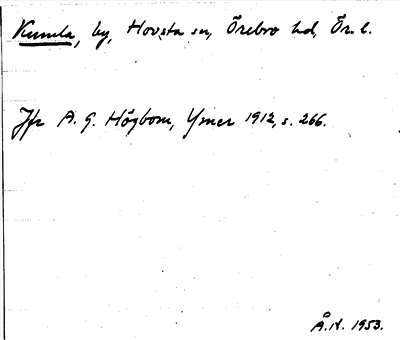 Kumla, by, Hovsta sn, Örebro hd, Ör. l.
Jfr A. G. Högbom, Ymer 1912, s. 266.
Å.H. 1953.